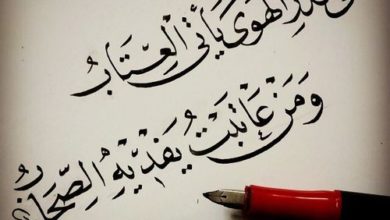 قدر الهوى يأتي العِتابُ
وَمَن عَاتبتُ يَفْدِيْهِ الصِّحَابُ